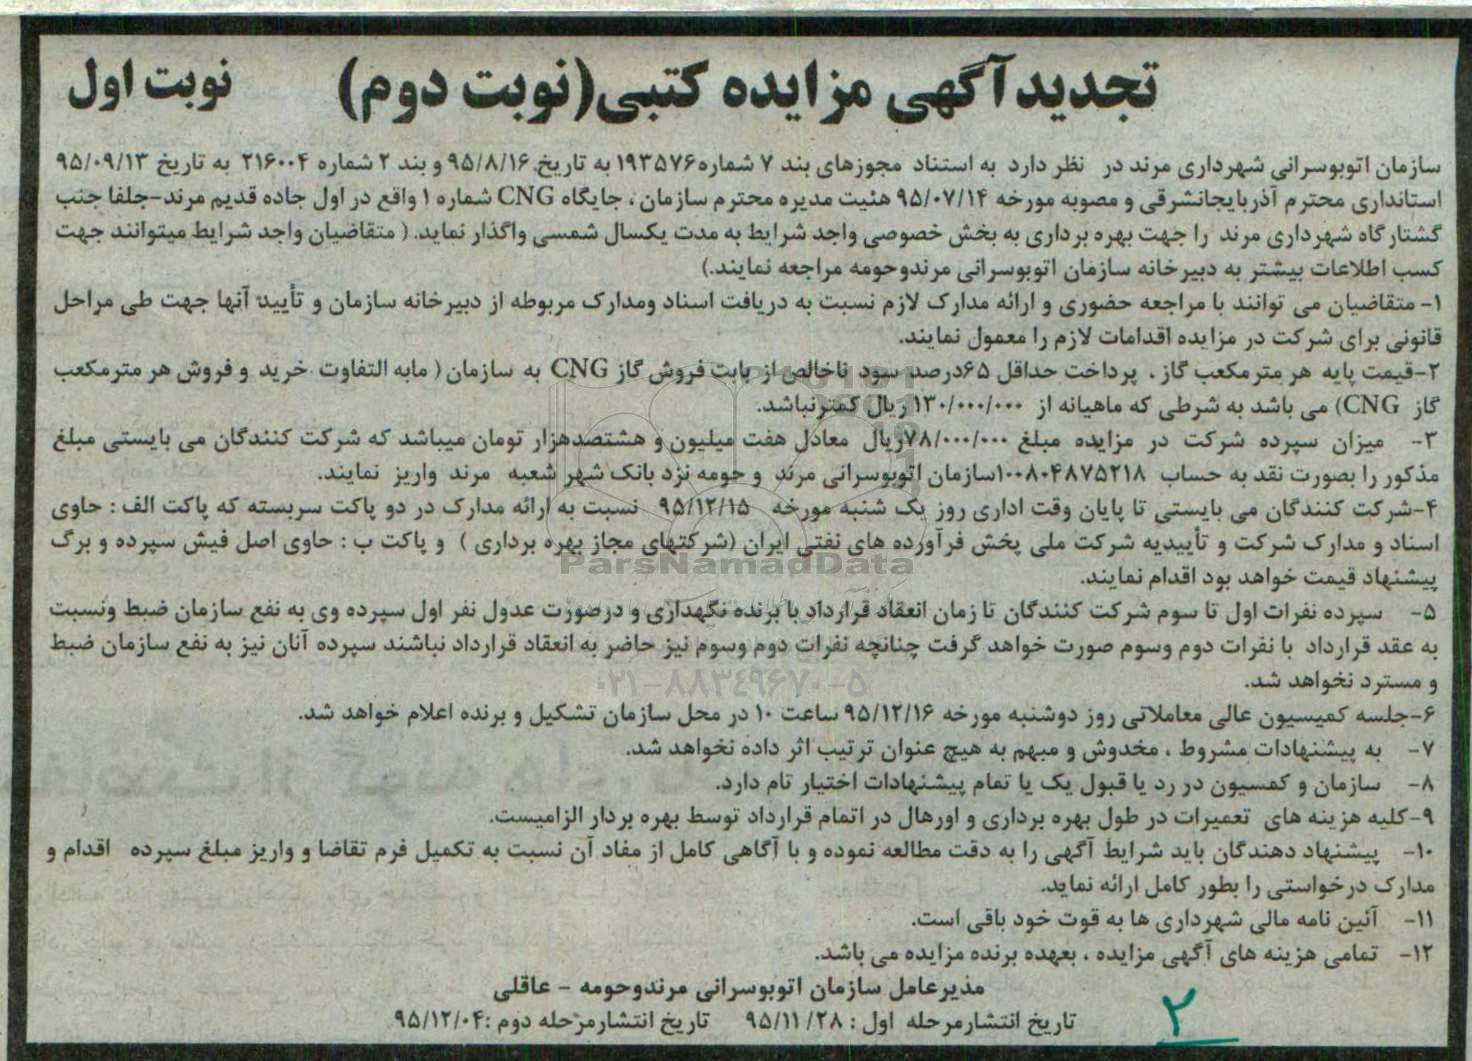 تجدید آگهی مزایده کتبی (نوبت دوم) نوبت اول
سازمان اتوبوسرانی شهرداری مرند در نظر دارد به استناد مجوزهای بند ۷ شماره ۱۹۳۵۷۶ به تاریخ ۹۵/۸/۱۶ و بند ۲ شماره ۲۱۶۰۰۴ به تاریخ ۹۵/۰۹/۱۳
استانداری محترم آذربایجانشرقی و مصوبه مورخه ۹۵/۰۷/۱۴ هئیت مدیره محترم سازمان ، جایگاه CNG شماره ۱ واقع در اول جاده قدیم مرند-جلفا جنب
گشتارگاه شهرداری مرند را جهت بهره برداری به بخش خصوصی واجد شرایط به مدت یکسال شمسی واگذار نماید. ( متقاضیان واجد شرایط میتوانند جهت
کسب اطلاعات بیشتر به دبیرخانه سازمان اتوبوسرانی مرندوحومه مراجعه نمایند.)
۱- متقاضیان می توانند با مراجعه حضوری و ارائه مدارک لازم نسبت به دریافت اسناد ومدارک مربوطه از دبیرخانه سازمان و تأیید آنها جهت طی مراحل
قانونی برای شرکت در مزایده اقدامات لازم را معمول نمایند.
۲-قیمت پایه هر مترمکعب گاز ، پرداخت حداقل ۶۵درصد سود ناخالص از بابت فروش گاز CNG به سازمان ( مابه التفاوت خرید و فروش هر مترمکعب
گاز CNG) می باشد به شرطی که ماهیانه از ۱۳۰/۰۰۰/۰۰۰ ریال کمترنباشد.
۳- میزان سپرده شرکت در مزایده مبلغ ۷۸/۰۰۰/۰۰۰ریال معادل هفت میلیون و هشتصدهزار تومان میباشد که شرکت کنندگان می بایستی مبلغ
مذکور را بصورت نقد به حساب ۱۰۰۸۰۴۸۷۵۲۱۸سازمان اتوبوسرانی مرند و حومه نزد بانک شهر شعبه مرند واریز نمایند.
۴-شرکت کنندگان می بایستی تا پایان وقت اداری روز یک شنبه مورخه ۹۵/۱۲/۱۵ نسبت به ارائه مدارک در دو پاکت سربسته که پاکت الف : حاوی
اسناد و مدارک شرکت و تأییدیه شرکت ملی پخش فرآورده های نفتی ایران (شرکتهای مجاز بهره برداری ) و پاکت ب : حاوی اصل فیش سپرده و برگ
ParsNamadData
پیشنهاد قیمت خواهد بود اقدام نمایند.
۵- سپرده نفرات اول تا سوم شرکت کنندگان تا زمان انعقاد قرارداد با برنده نگهداری و درصورت عدول نفر اول سپرده وی به نفع سازمان ضبط ونسبت
به عقد قرارداد با نفرات دوم وسوم صورت خواهد گرفت چنانچه نفرات دوم وسوم نیز حاضر به انعقاد قرارداد نباشند سپرده آنان نیز به نفع سازمان ضبط
و مسترد نخواهد شد.
۰۲۱-۸۸۳۴۹۶۷۰-۵
۶-جلسه کمیسیون عالی معاملاتی روز دوشنبه مورخه ۹۵/۱۲/۱۶ ساعت ۱۰ در محل سازمان تشکیل و برنده اعلام خواهد شد.
۷- به پیشنهادات مشروط ، مخدوش و مبهم به هیچ عنوان ترتیب اثر داده نخواهد شد.
۸- سازمان و کمسیون در رد یا قبول یک یا تمام پیشنهادات اختیار تام دارد.
۹-کلیه هزینه های تعمیرات در طول بهره برداری و اورهال در اتمام قرارداد توسط بهره بردار الزامیست.
۱۰- پیشنهاد دهندگان باید شرایط آگهی را به دقت مطالعه نموده و با آگاهی کامل از مفاد آن نسبت به تکمیل فرم تقاضا و واریز مبلغ سپرده اقدام و
مدارک درخواستی را بطور کامل ارائه نماید.
۱۱- آئین نامه مالی شهرداری ها به قوت خود باقی است.
۱۲- تمامی هزینه های آگهی مزایده ، بعهده برنده مزایده می باشد.
مدیرعامل سازمان اتوبوسرانی مرندوحومه - عاقلی
تاریخ انتشارمرحله اول : ۹۵/۱۱/۲۸ تاریخ انتشارمرحله دوم :۹۵/۱۲/۰۴
۲